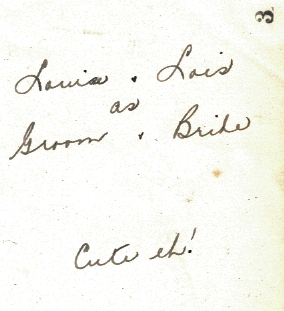 3
Louise . Lois
as
Groom . Bride
Cute eh!